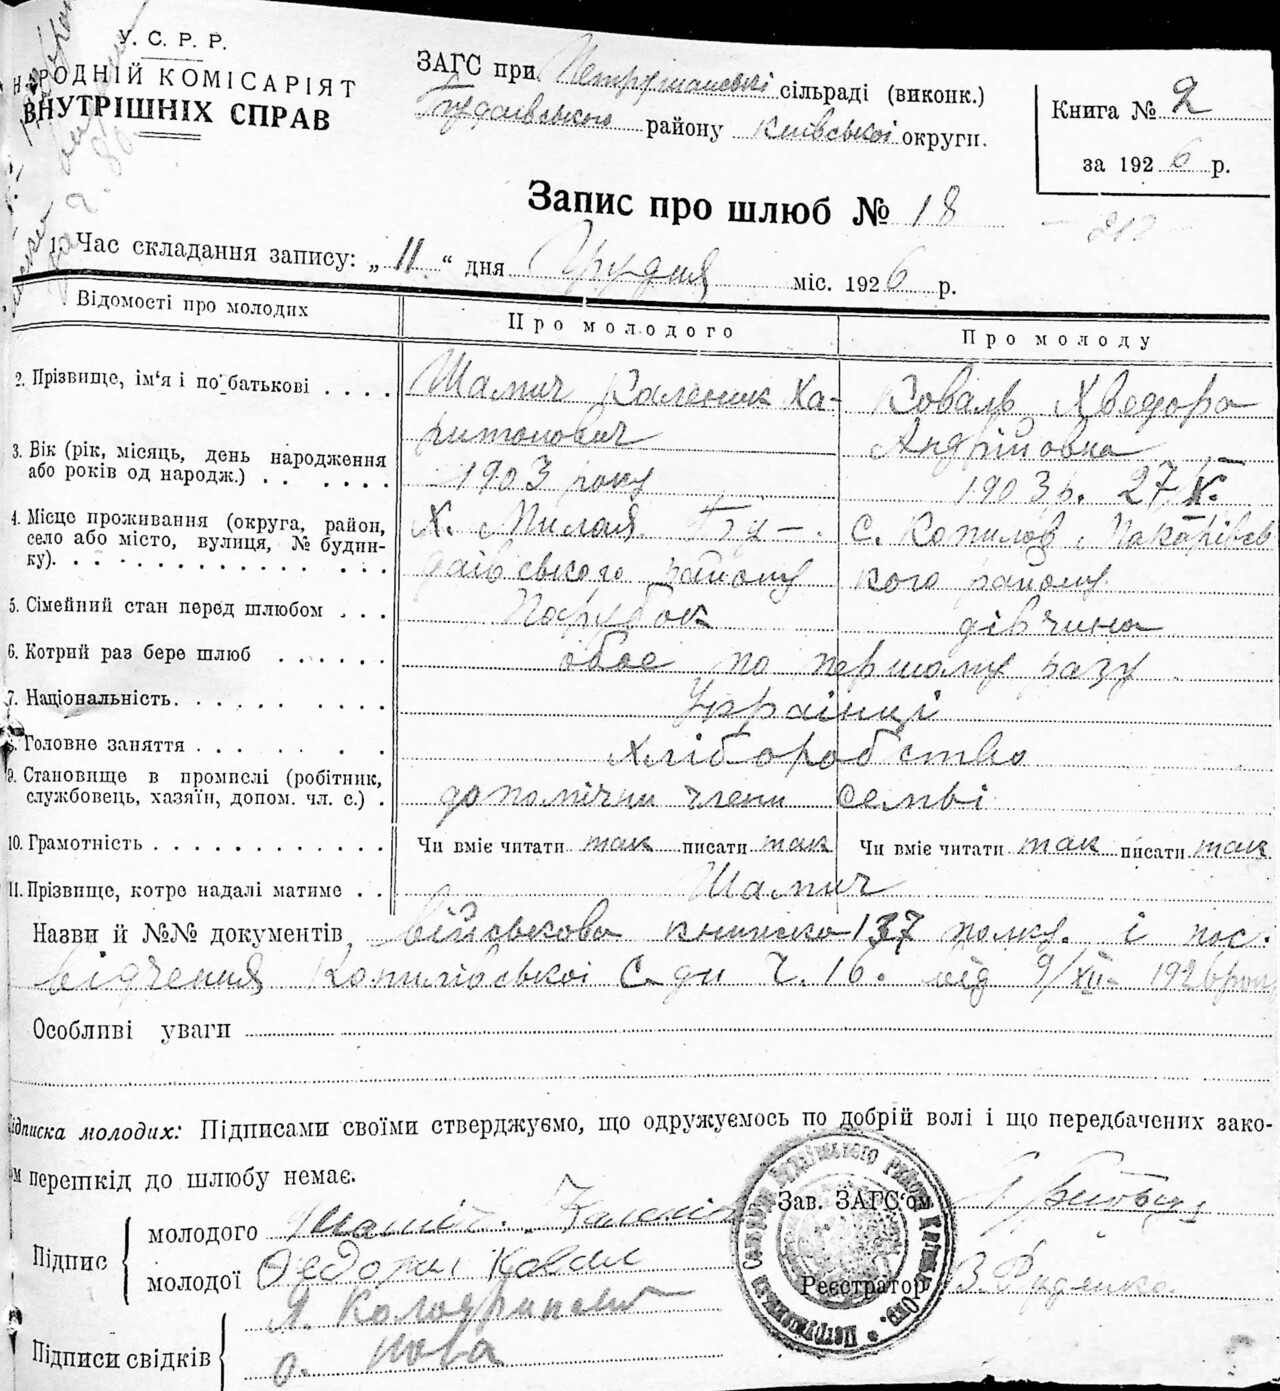 У. С. Р. Р.
НАРОДНІЙ КОМІСАРІЯТ
ВНУТРІШНІХ СПРАВ
ЗАГС при Петрушанській сільраді (виконк.)
Будаївського району Київської округи.
Книга № 2
за 1926 р.
Запис про шлюб № 18
1. Час складання запису: „11“ дня Грудня міс. 1926 р.
Відомості про молодих
Про молодого
Про молоду
2. Прізвище, ім'я і по батькові . . . .
Шамич Каленик Ха-
ритонович
Коваль Хведора
Андрійовна
3. Вік (рік, місяць, день народження
або років од народж.) . . . . . .
1903 року
1903 р. 27/X.
4. Місце проживання (округа, район,
село або місто, вулиця, № будин-
ку). . . . . . . . . . . . . . .
Х. Милая Бу-
даївського району
с. Копилов, Макарівсь
кого району
5. Сімейний стан перед шлюбом . . .
Парубок
дівчина
6. Котрий раз бере шлюб . . . . . .
обоє по першому разу
7. Національність. . . . . . . . .
Українці
8. Головне заняття . . . . . . . .
Хліборобство
9. Становище в промислі (робітник,
службовець, хазяїн, допом. чл. с.) .
допомічни члени семьї
10. Грамотність . . . . . . . . . . . .
Чи вміє читати так писати так
Чи вміє читати так писати так
11. Прізвище, котре надалі матиме . .
Шамич
Назви й №№ документів військова книжка 137 полку. і пос-
відчення Копилівської С-ди Ч. 16. від 9/XII- 1926 року
Особливі уваги
Підписка молодих: Підписами своїми стверджуємо, що одружуємось по добрій волі і що передбачених зако-
ом перешкід до шлюбу немає.
Підпис
молодого Шаміч
молодої Федора Ковал
Зав. ЗАГС'ом
Реєстратор З. Руденко.
Підписи свідків